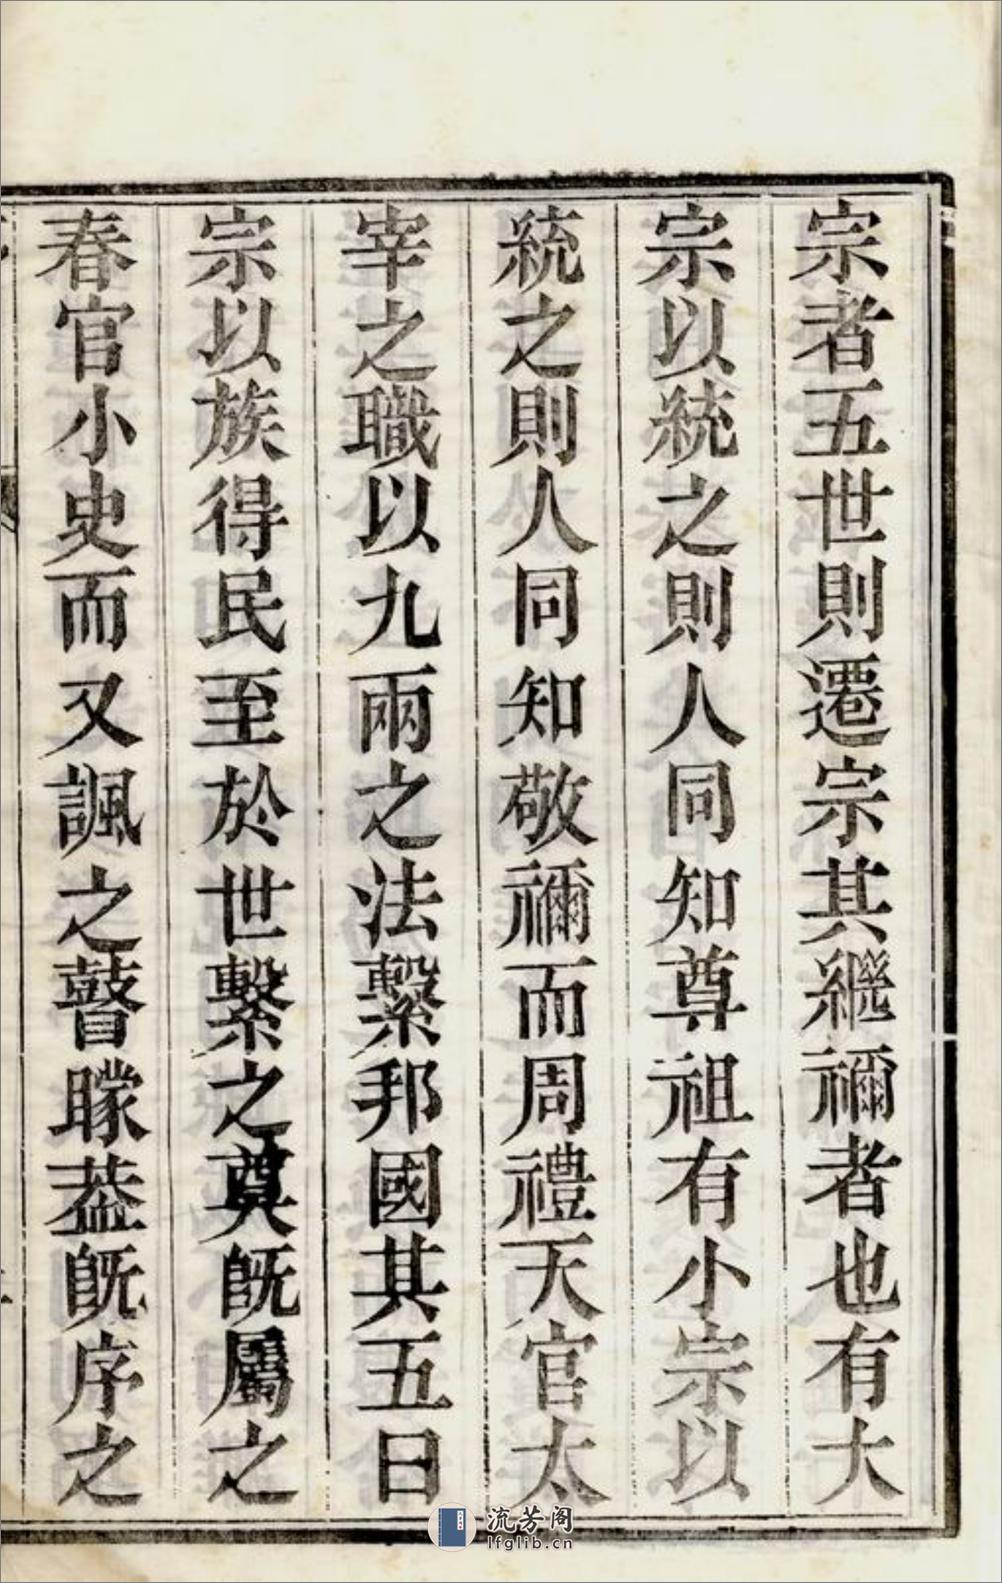 宗者五世則遷宗其繼禰者也有大
宗以統之則人同知尊祖有小宗以
統之則人同知敬禰而周禮天官太
宰之職以九兩之法繫邦國其五曰
宗以族得民至於世繫之奠旣屬之
春官小史而又諷之瞽矇葢旣序之
流芳阁
lfglib.cn